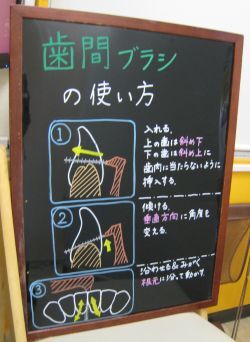 歯間ブラシ
の使い方
①
入れる.
上の歯は斜め下
下の歯は斜め上に
歯肉に当たらないように
挿入する.
②
傾ける.
垂直方向に角度を
変える.
③
沿わせる&みがく
根元に沿って動かす.